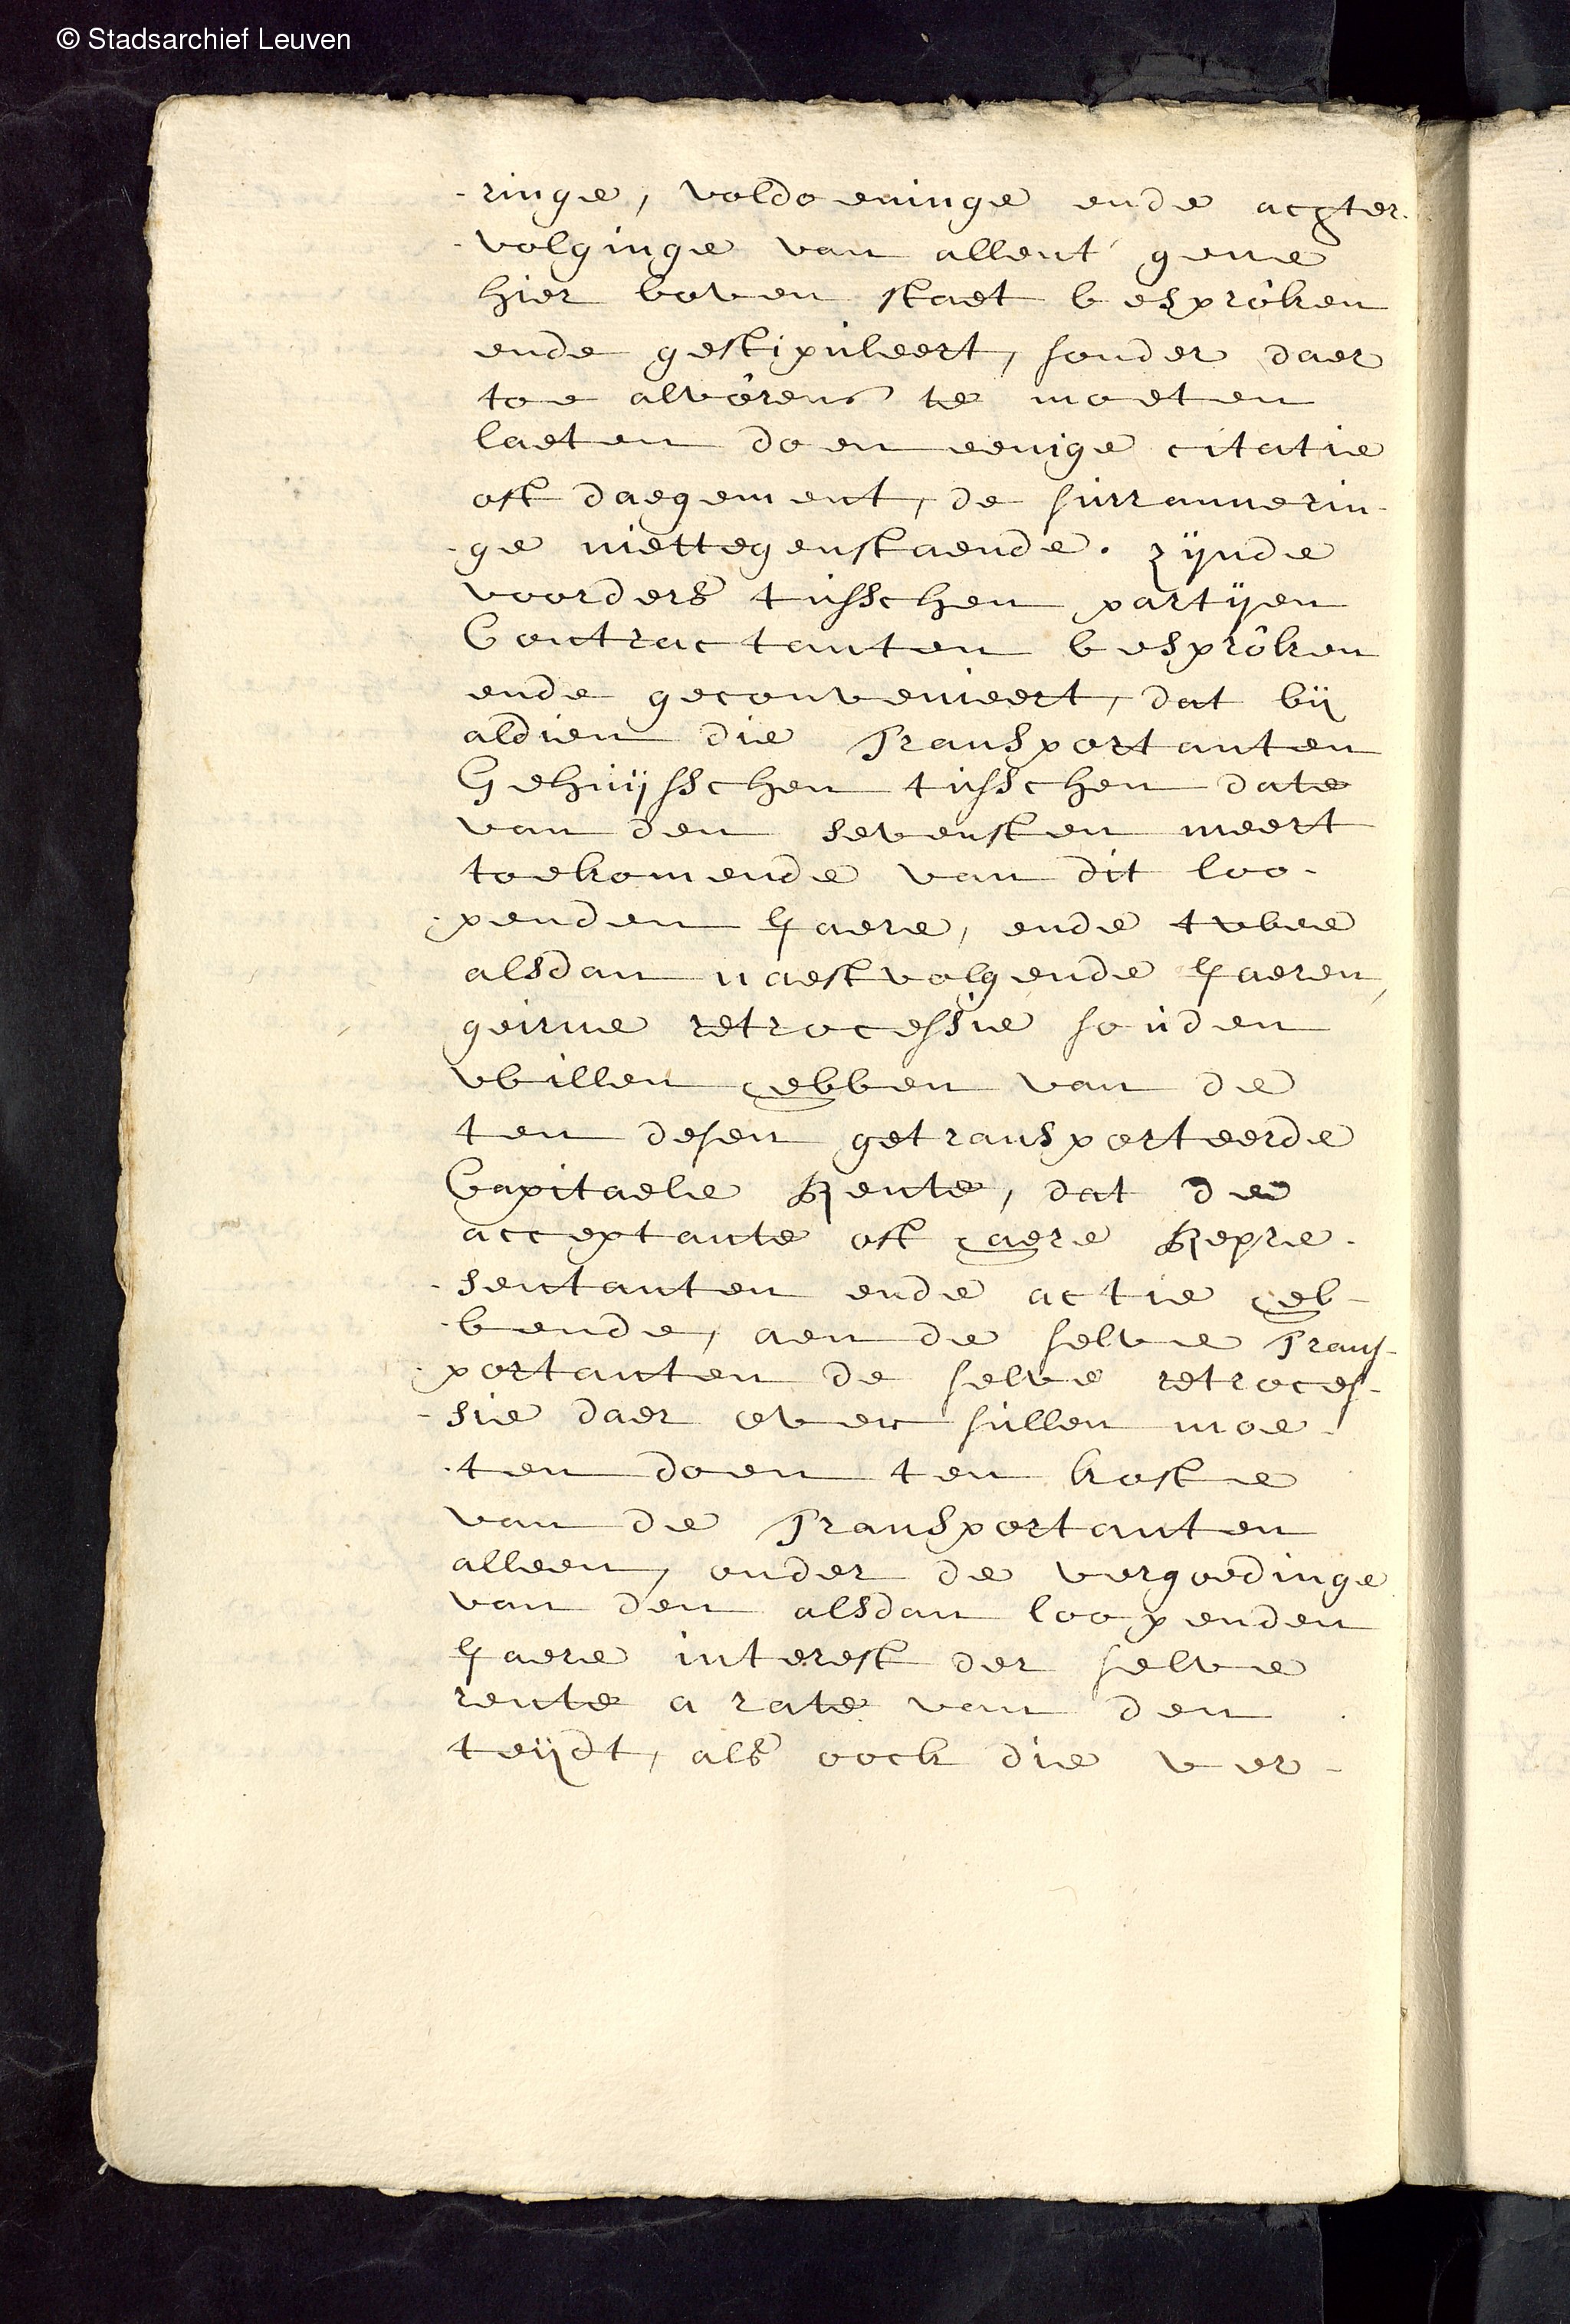 © Stadsarchief Leuven
-ringe, voldoeninge ende achter-
-volginge van allent' gene
hier boven staet besprôken
ende gestipuleert, sonder daer
toe alvôrens te moeten
laeten doen eenige citatie
oft daegement, de surrannerin-
-ge niettegenstaende. zÿnde
voorders tusschen partÿen
Contractanten besprôken
ende geconvenieert, dat bÿ
aldien die Transportanten
Gehuÿsschen tusschen date
van den sevensten meert
toekomende van dit loo-
-penden Jaere, ende twee
alsdan naestvolgende Jaeren,
geinne retrocessie souden
willen hebben van de
ten desen getransporteerde
Capitaele Rente, dat de
acceptante oft haere Repre-
-sentanten ende actie heb-
-bende, aen de selve Trans-
-portanten de selve retroces-
-sie daer over sullen moe-
-ten doen ten koste
van de Transportanten
alleen, onder de vergoedinge
van den alsdan loopenden
Jaere interest der selve
rente a rate van den
teÿdt, als oock die ver-